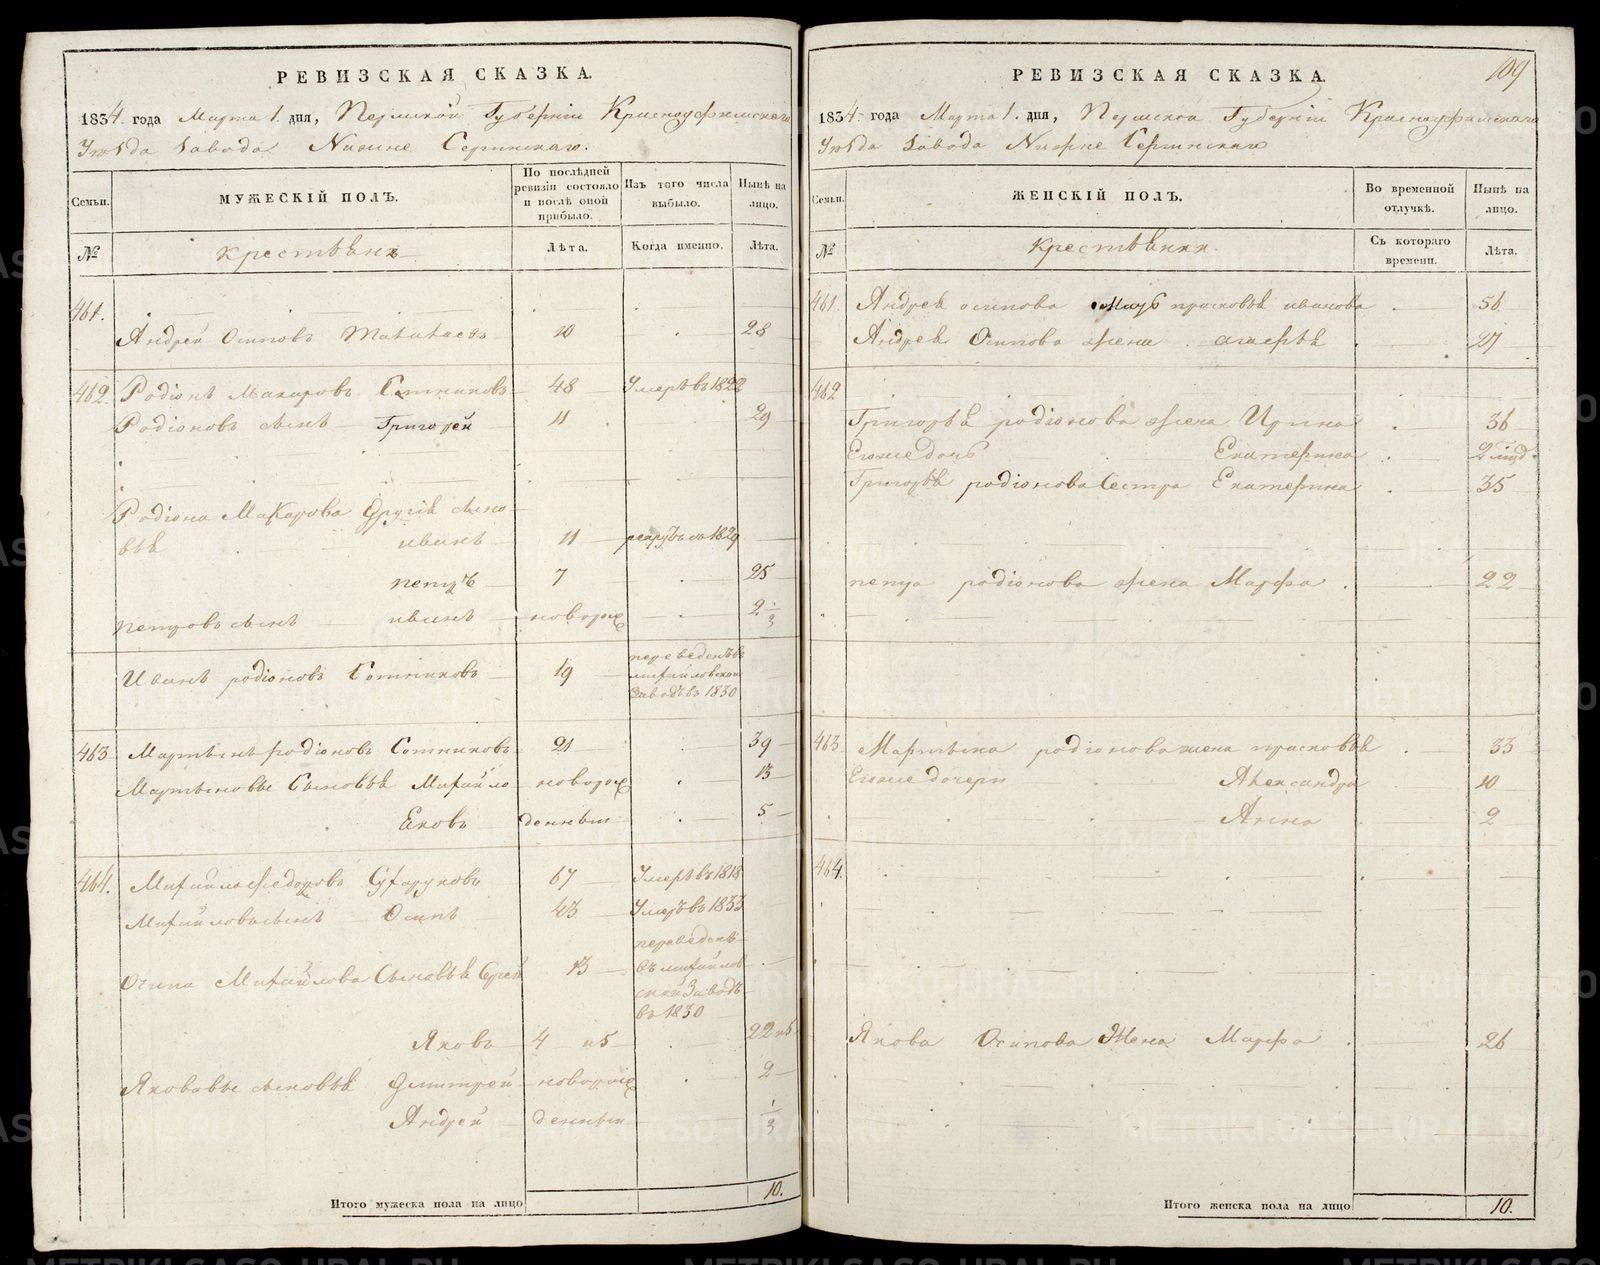 РЕВИЗСКАЯ СКАЗКА.
1834. года Марта 1. дня, Пермской Губерніи Красноуфимскаго
Уѣзда Завода Нижне Сергинскаго.
Семьи.
МУЖЕСКІЙ ПОЛЪ.
По послѣдней ревизіи состояло и послѣ оной прибыло.
Изъ того числа выбыло.
Нынѣ на лицо.
№
крестьянъ
Лѣта.
Когда именно.
Лѣта.
461.
Андрей Осиповъ 10 28
462. Родіонъ Макаровъ Сотниковъ 48 Умеръ въ 1822
Родіоновъ сынъ Григорей 11 29
Родіона Макарова Другіе сыно
вья иванъ 11 рекрутъ въ 1829
петръ 7 25
петровъ сынъ иванъ новорож 2
Иванъ родіоновъ Сотниковъ 19 переведенъ въ
михайловской
Заводъ въ 1830
463 Мартынъ родіоновъ Сотниковъ 21 39
Мартыновы Сыновья Михайло новорож 13
Ековъ денныи 5
464. Михайло Федоровъ 67 Умеръ въ 1818
Михайлова сынъ Осипъ 43 Умеръ въ 1833
переведенъ
Осипа Михайлова Сыновья Сергей 13 въ михайлов
ской Заводъ
въ 1830
Яковъ 4 и 5 22 и 5
Яковавы сыновья Дмитрей новорож 2
Андрей денныи 1/3
Итого мужеска пола на лицо 10.
109
РЕВИЗСКАЯ СКАЗКА.
1834. года Марта 1. дня, Пермской Губерніи Красноуфимскаго
Уѣзда Завода Нижне Сергинскаго
Семьи.
ЖЕНСКІЙ ПОЛЪ.
Во временной отлучкѣ.
Нынѣ на лицо.
№
крестьянки
Съ котораго времени.
Лѣта.
461 Андрея осипова Мать прасковья иванова 56
Андрея Осипова жена 27
462
Григорья родіонова жена Ирина 36
Егоже дочь Екатерина 2
Григорья родіонова Сестра Екатерина 35
петра родіонова жена Марфа 22
463 Мартына родіонова жена прасковья 33
Егоже дочери Александра 10
Анна 2
464.
Якова Осипова Жена Марфа 26
Итого женска пола на лицо 10.
METRIKI.GASO-URAL.RU